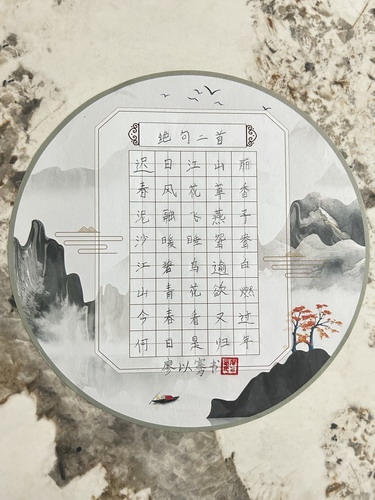 绝句二首
迟日江山丽
春风花草香
泥融飞燕子
沙暖睡鸳鸯
江碧鸟逾白
山青花欲燃
今春看又过
何日是归年
廖以骞书